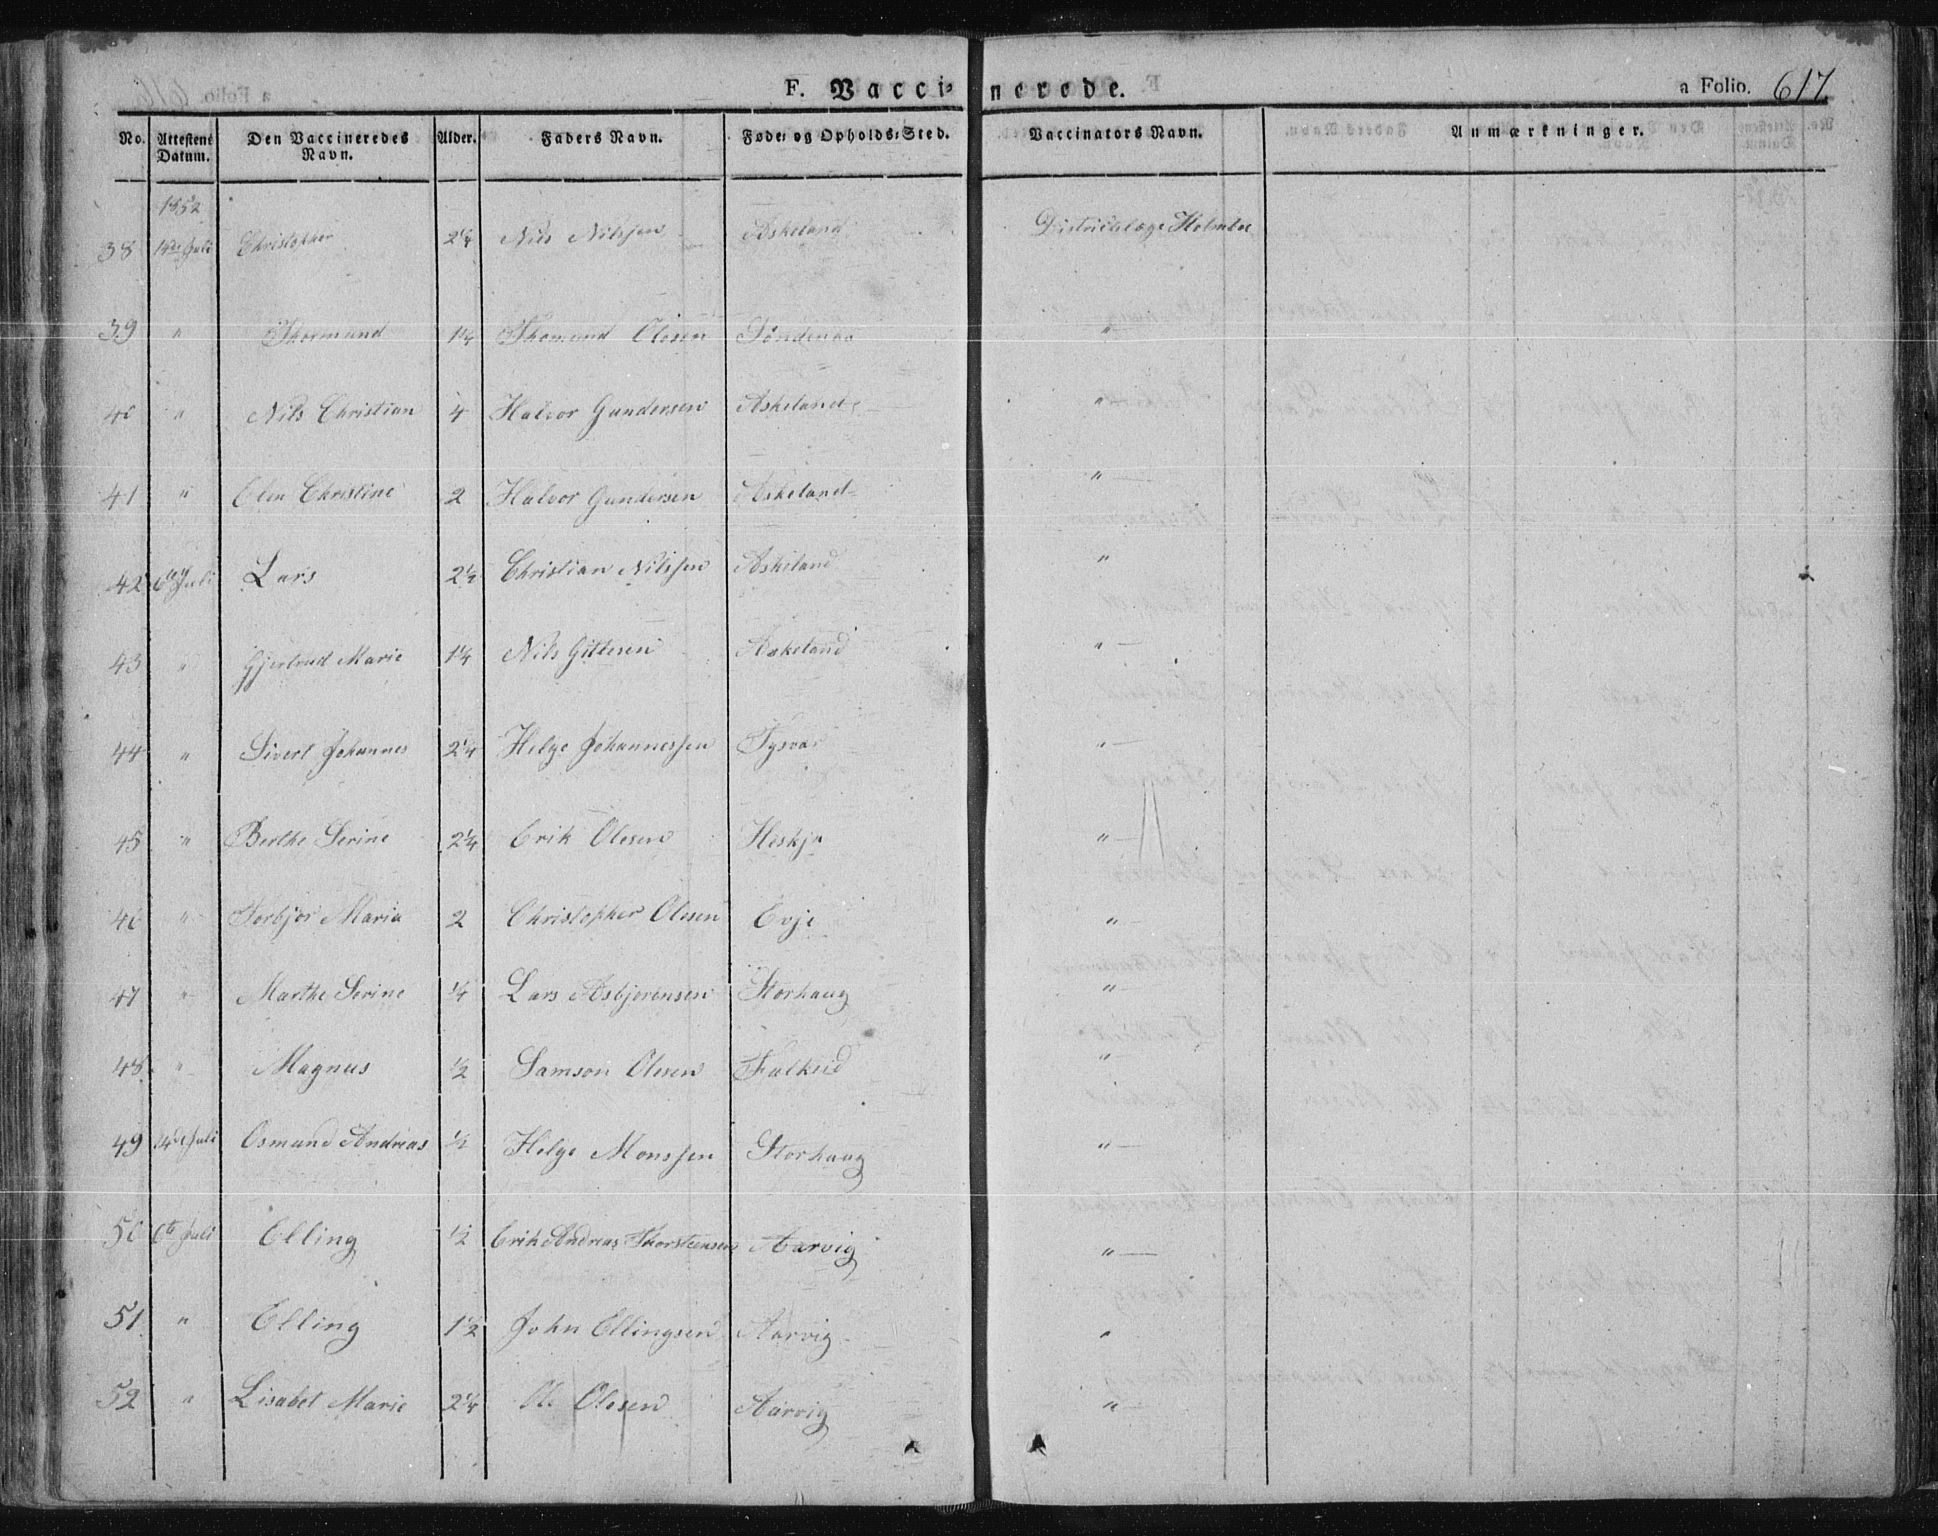 F. Vaccinerede. a Folio. 617
No. Attestens Datum. Den Vaccineredes Navn. Alder. Faders Navn. Føde- og Opholds-Sted. Vaccinators Navn. Anmærkninger.
1852
38 14de Juli Christopher 2¼ Nils Nilssen Askeland Districtslæge Holmboe
39 " Thormund 1¼ Thomund Olesen Søndenaa "
40 " Nils Christian 4 Halvor Gundersen Askeland "
41 " Olen Christine 2 Halvor Gundersen Askeland "
42 6te Juli Lars 2½ Christian Nilssen Askeland "
43 " Gjertrud Marie 1¼ Nils Gittesen Askeland "
44 " Sivert Johannes 2¼ Helge Johannessen Tysvær "
45 " Berthe Serine 2¼ Erik Olesen Heskja "
46 " Torbjor Maria 2 Christopher Olesen Evje "
47 " Marthe Serine ¼ Lars Asbjørensen Storhaug "
48 " Magnus ½ Samson Olesen Falkeid "
49 14de Juli Osmund Andreas ½ Helge Monssen Storhaug "
50 6te Juli Elling ½ Erik Andreas Thorsteensen Aarvig "
51 " Elling 1½ John Ellingsen Aarvig "
52 " Lisabet Marie 2¼ Ole Olesen Aarvig "